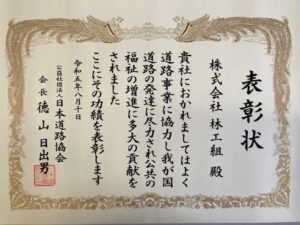 表彰状
株式会社 林工組 殿
貴社におかれましてはよく
道路事業に協力し我が国
道路の発達に尽力され公共の
福祉の増進に多大の貢献を
されました
ここにその功績を表彰します
令和五年八月十日
公益社団法人 日本道路協会
会長 德山日出男